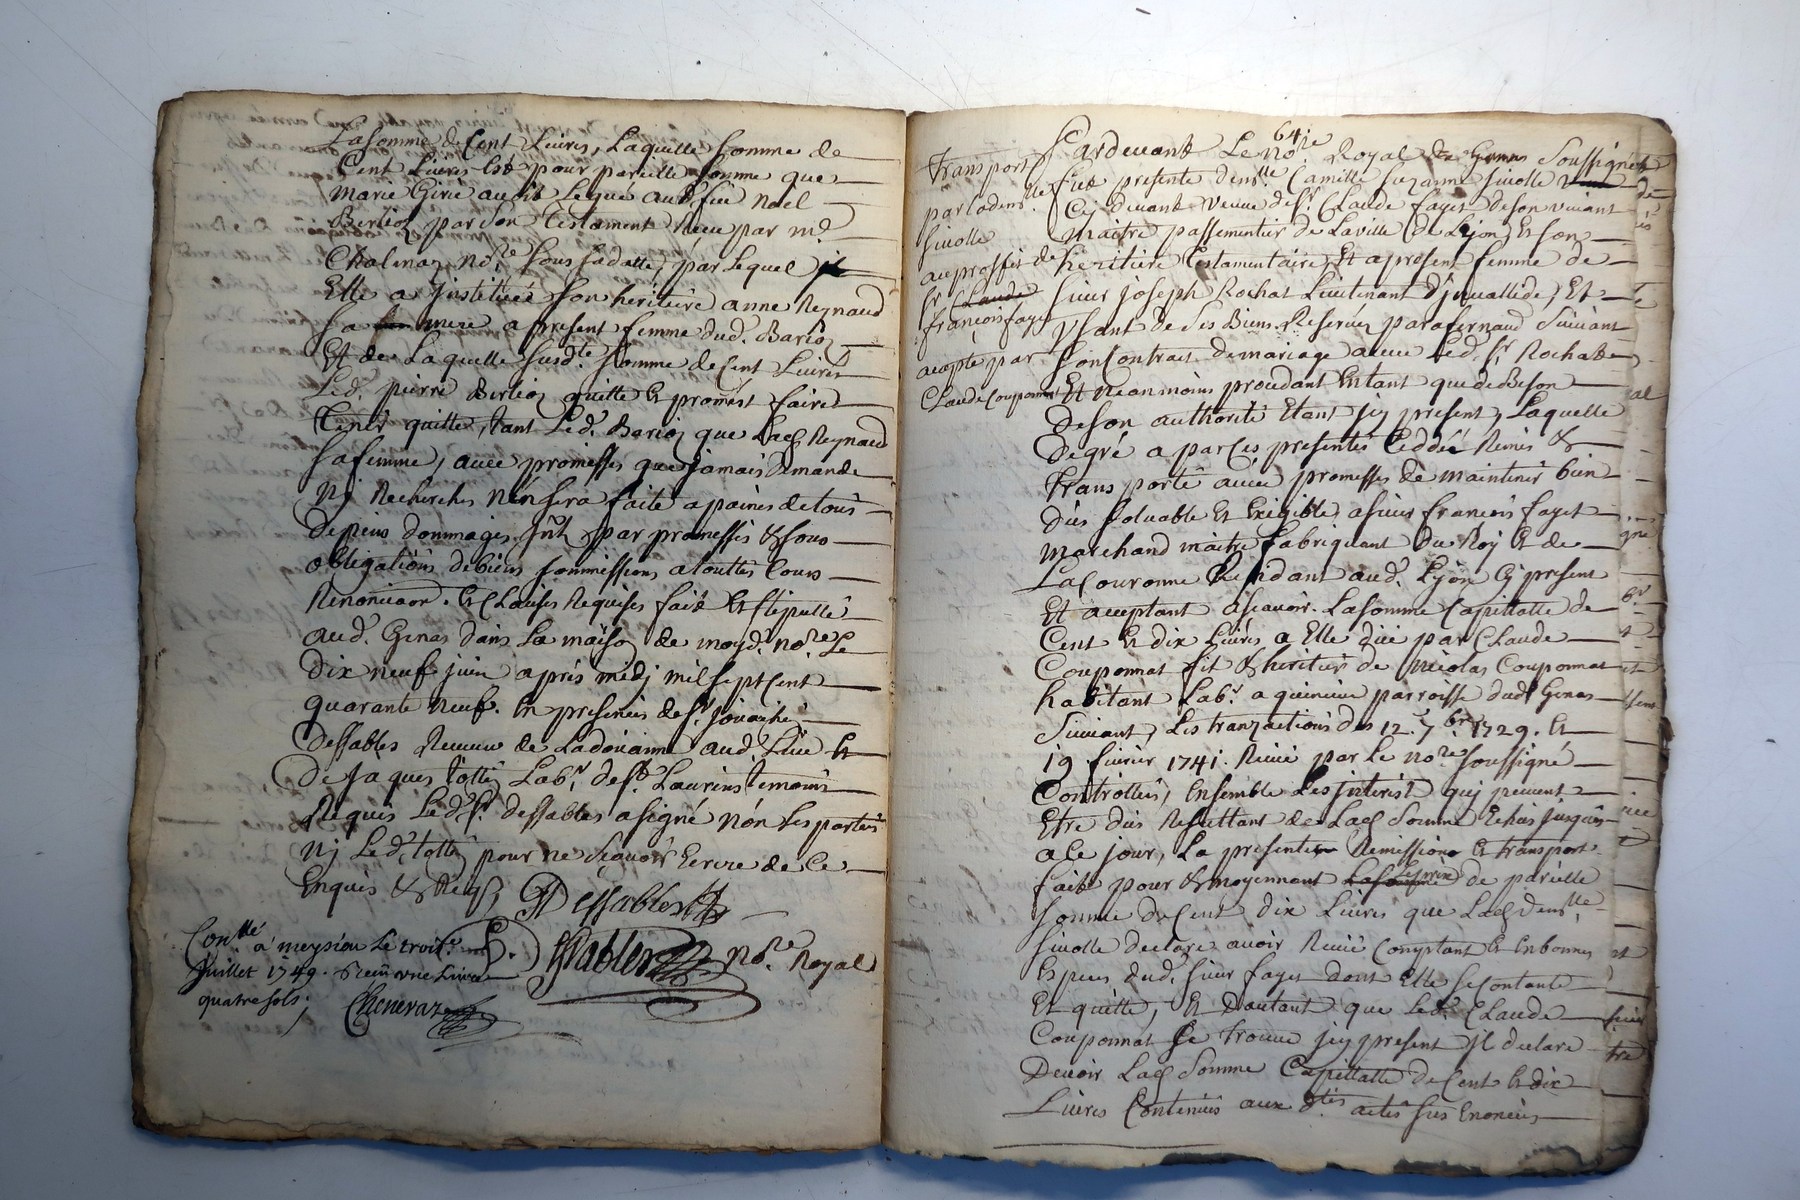 La somme de Cent Livres, Laquelle somme de
Cent Livres Est pour pareille somme que
marie Girié audit Legué aud. feu noel
Berlioz par son testament Receu par me.
Chalmaz nore. sous sa datte, par Lequel
Elle a jnstitüée son heritiere anne Reynaud
sa mere apresent femme dud. Barioz
Et de Laquelle susdte. somme de Cent Livres
Led. pierre Berlioz quitte Et promest faire
tenir quitte, tant Led. Barioz que Lad Reynaud
sa femme, avec promesses que jamais demande
Nj Recherches N'en sera faite apaines de tous
depens dommages jnt. par promesses & sous
obligations de biens sommissions atouttes Cours
Renonciaon. Et Clauses Requises fait Et stipullé
aud. Genas dans La maison de moyd. nore. Le
Dix neuf juin aprés midj mil sept Cent
quarante neuf. En presences de sr. jouachin
dessables Receveur de La doüanne aud. Lieu Et
de jaques totty Labr. de st. Laurens temoins
Requis Led. sr. dessables a signé non Les parties
Nj Led. totty pour ne sçavoir Ecrire de Ce
Enquis & Req
Dessables
Dessables nore. Royal
Conllé a meysieu Le troise.
Juillet 1749. Receu une Livre
quatre sols;
Chenevaz
64
Pardevant Le nore. Royal de Genas Soussigné
fut presente demlle. Camille suzanne sivolle
Cy devant veuve de sr. Claude fayet de son vivant
Maitre passementier de La ville de Lyon, Et son
heritiere testamentaire, Et apresent femme de
sieur joseph Rochat Lieutenant d'jnvallide, Et
Usant de ses Biens Reservez parafernaud suivant
son Contrat de mariage avec Led. sr. Rochat
Et Neanmoins procedant En tant que de Besoin
de son authorité Etant jcy present, Laquelle
de gré a par Ces presentes Ceddé Remis &
transporté avec promesses de maintenir bien
düs solvable Et Exigible, a sieur francois fayet
marchand maitre fabriquant du Roj Et de
La Couronne Residant aud. Lyon Cy present
Et acceptant asçavoir. La somme Capitalle de
Cent Et dix Livres a Elle düe par Claude
Couponnat fils & heritier de nicolas Couponnat
habitant Labr. a quincieu parroisse dud Genas
Suivant Les tranzactions des 12. 7bre. 1729. Et
19. fevrier 1741. Receu par Le nore. soussigné
Controllées, Ensemble Les jnterest quj peuvent
Etre düs Resultant de Lad Somme Echus jusques
a Ce jour, La presente Remission Et transport
faite pour & moyennant Le prix de pareille
somme de Cent dix Livres que Lad demlle.
sivolle declare avoir Receu Comptant Et En bonnes
Especes dud. sieur fayet dont Elle se Contante
Et quitte, Et D'autant que Led. Claude
Couponnat se trouve jcy present jl declare
Devoir Lad somme Capittalle de Cent Et dix
Livres Contenües aux dtes. actes sus Enoncées
transport
par lademlle.
sivolle
auproffit de
sr Claude
francois fayet
accepté par
Claude Couponnat